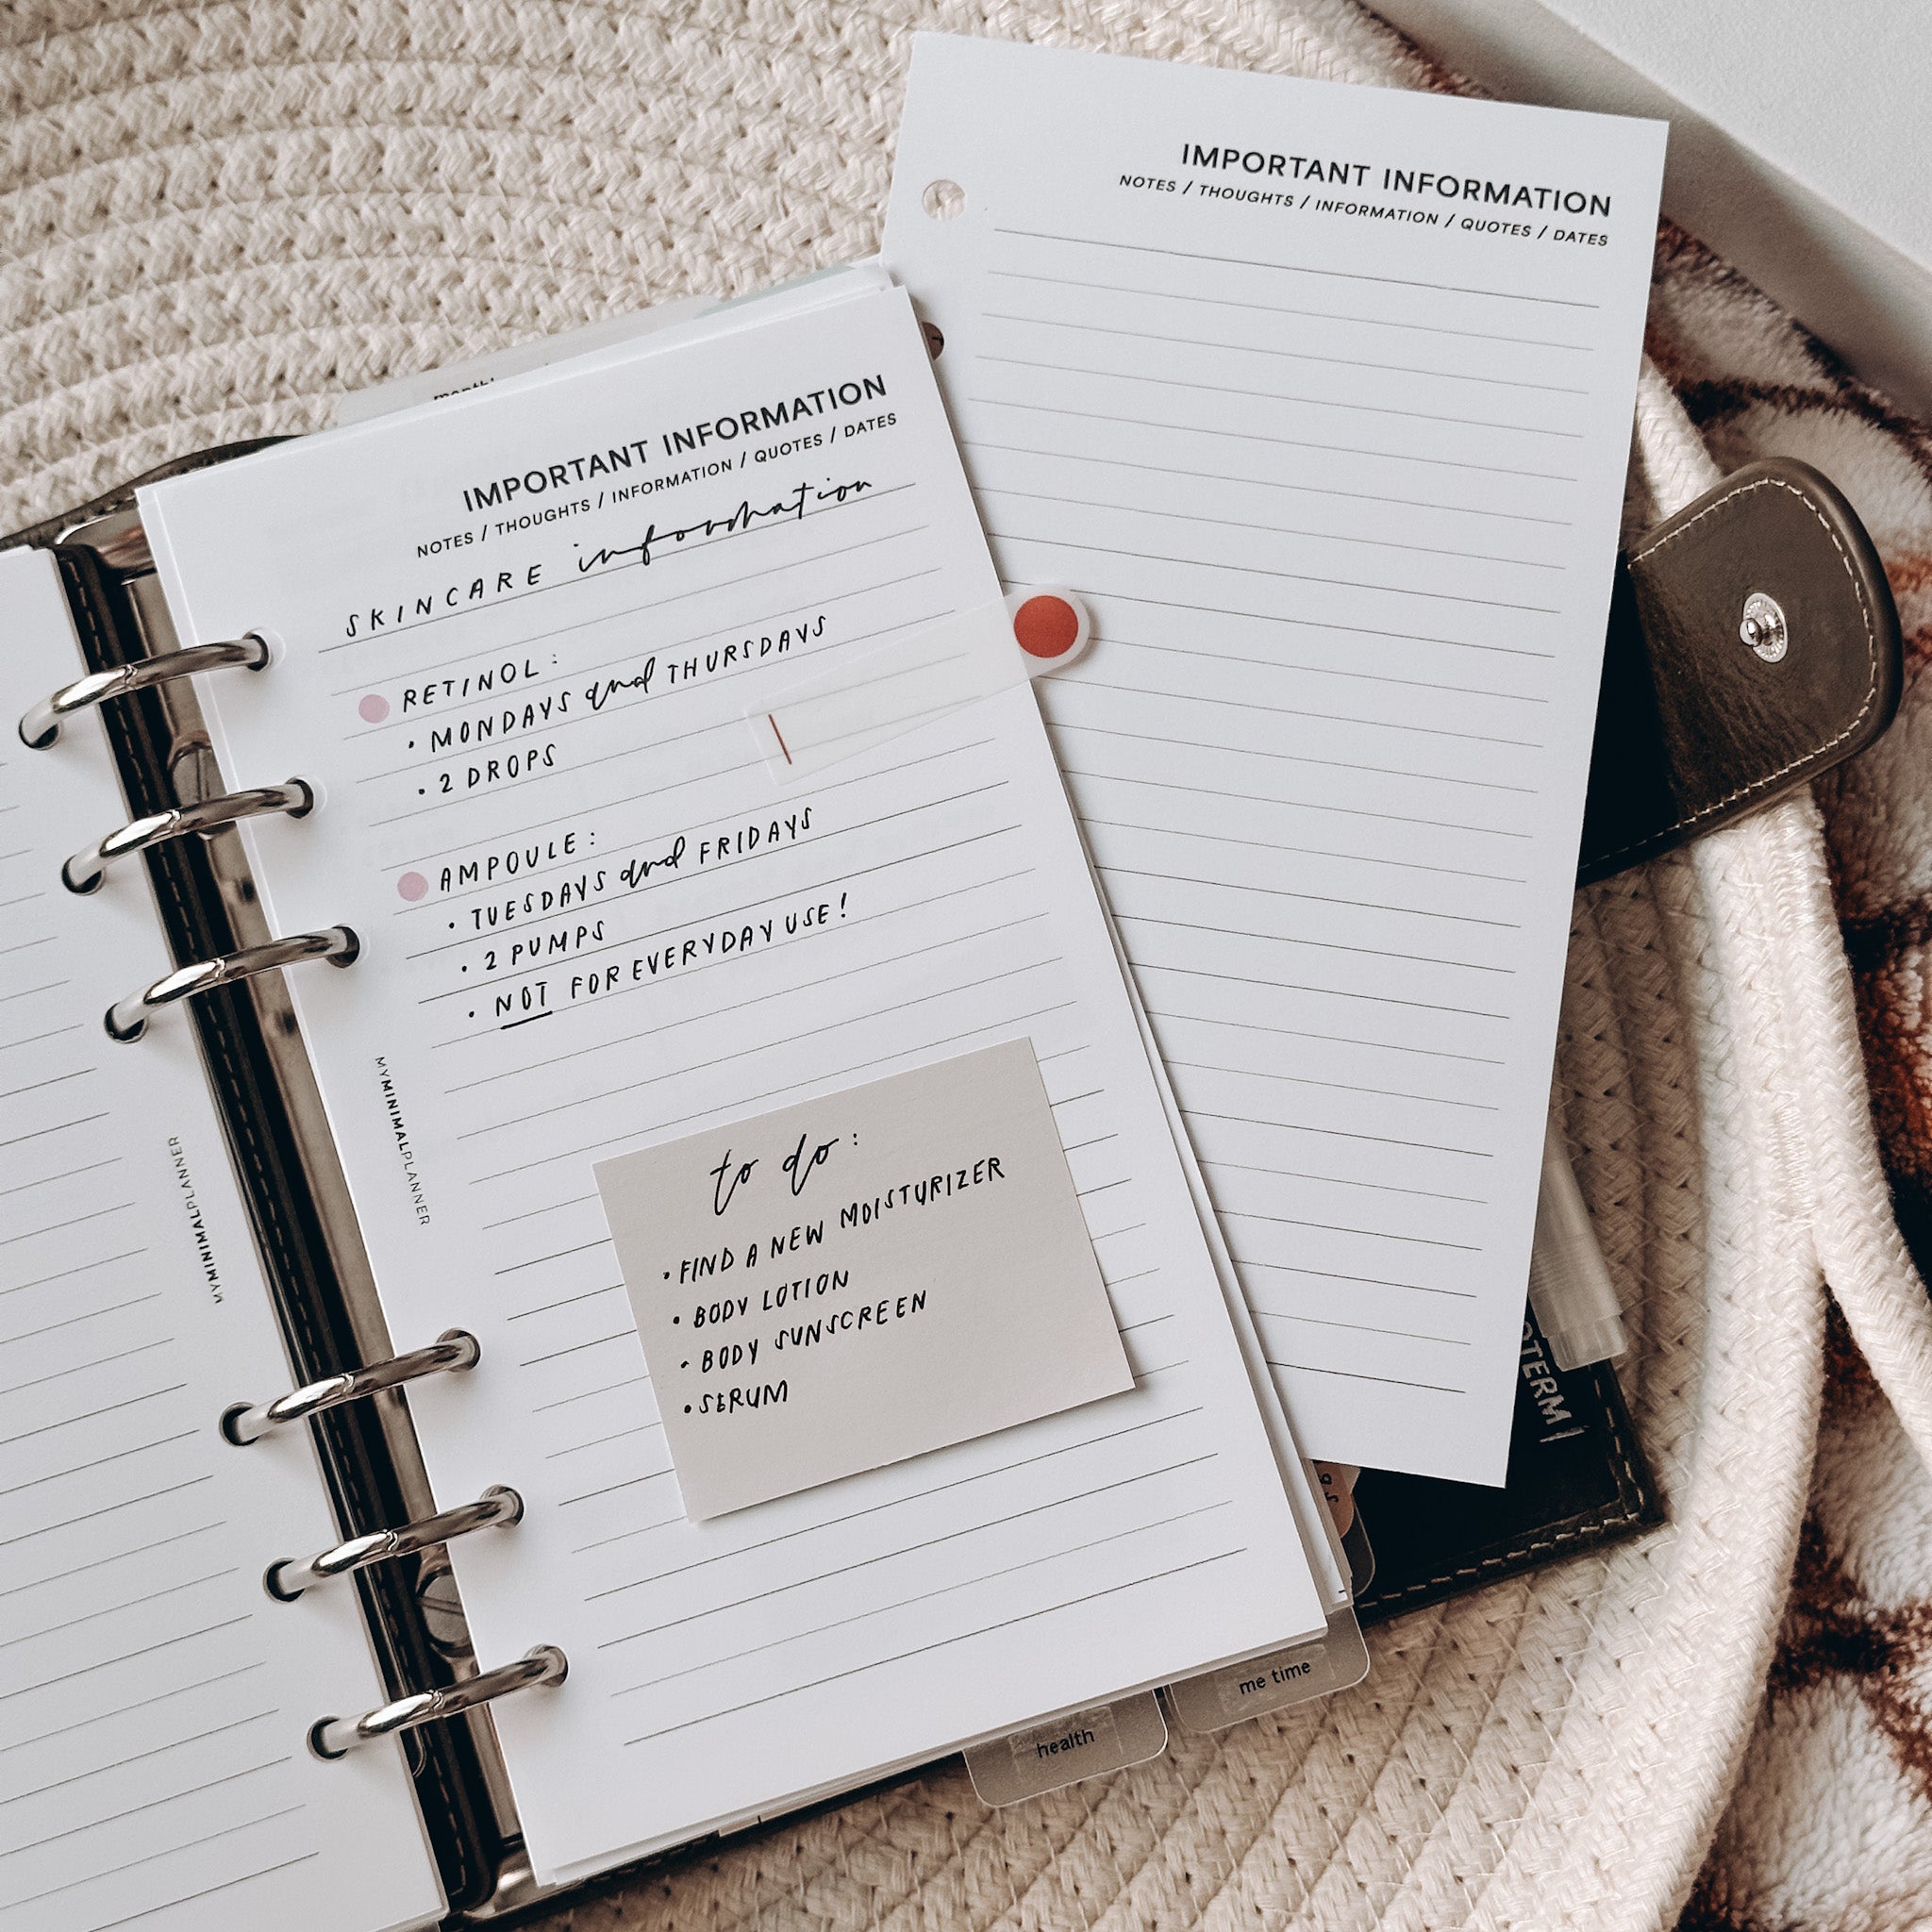 IMPORTANT INFORMATION
NOTES / THOUGHTS / INFORMATION / QUOTES / DATES
IMPORTANT INFORMATION
NOTES / THOUGHTS / INFORMATION / QUOTES / DATES
SKINCARE information
RETINOL:
• MONDAYS and THURSDAYS
• 2 DROPS
AMPOULE:
• TUESDAYS and FRIDAYS
• 2 PUMPS
• NOT FOR EVERYDAY USE!
MYMINIMALPLANNER
MYMINIMALPLANNER
to do:
• FIND A NEW MOISTURIZER
• BODY LOTION
• BODY SUNSCREEN
• SERUM
me time
health